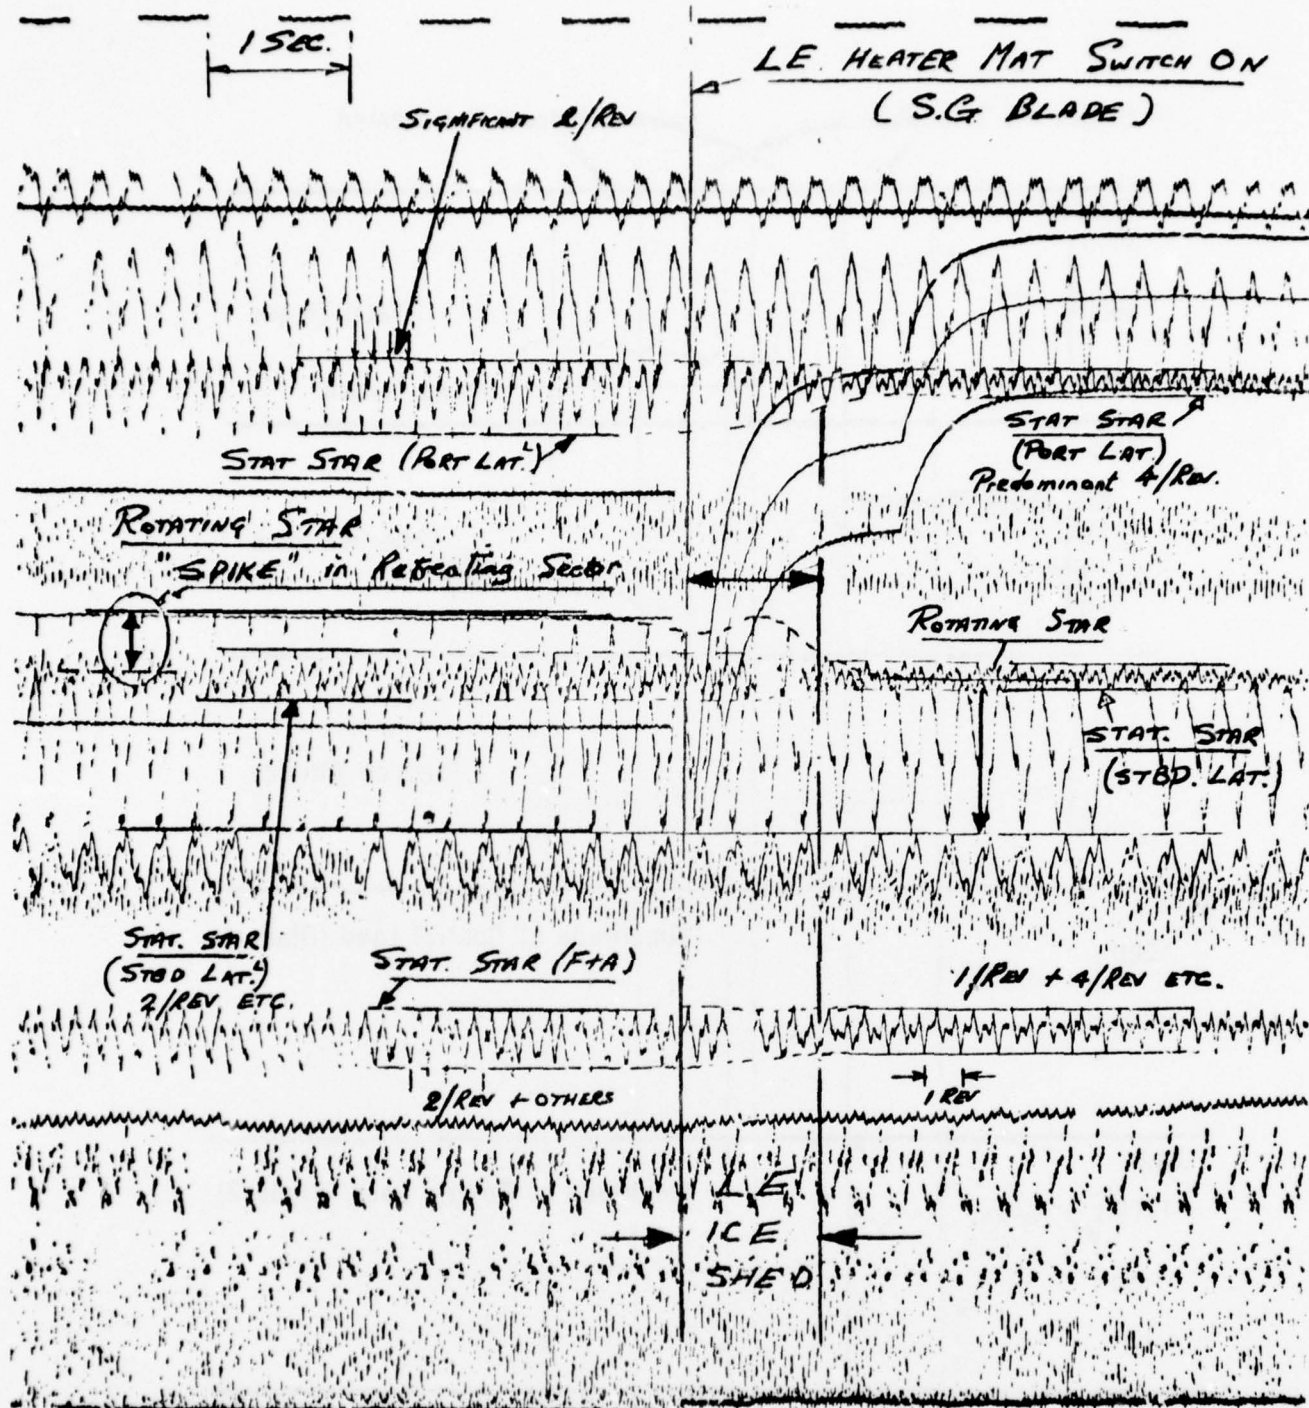 1 SEC.
LE. HEATER MAT SWITCH ON
(S.G. BLADE)
SIGNIFICANT 2/REV
STAT STAR (PORT LAT.L)
STAT STAR
(PORT LAT.)
Predominant 4/Rev.
ROTATING STAR
"SPIKE" in Retreating Sector
ROTATING STAR
STAT. STAR
(STBD. LAT.)
STAT. STAR
(STBD LAT.L)
2/REV ETC.
STAT. STAR (F+A)
1/REV + 4/REV ETC.
2/REV + OTHERS
1 REV
LE
ICE
SHED